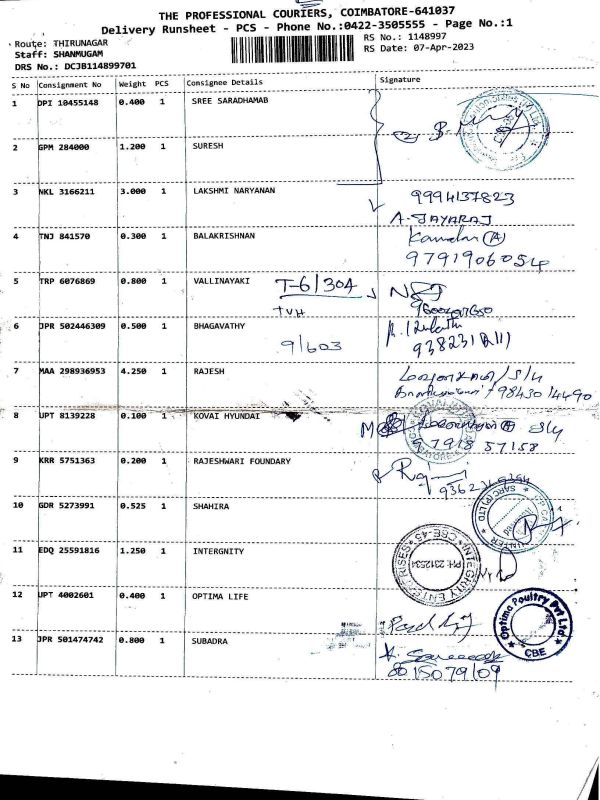 THE PROFESSIONAL COURIERS, COIMBATORE-641037
Delivery Runsheet - PCS - Phone No.:0422-3505555 - Page No.:1
Route: THIRUNAGAR
RS No.: 1148997
Staff: SHANMUGAM
RS Date: 07-Apr-2023
DRS No.: DCJB114899701
S No Consignment No Weight PCS Consignee Details Signature
1 DPI 10455148 0.400 1 SREE SARADHAMAB
2 GPM 284000 1.200 1 SURESH
3 NKL 3166211 3.000 1 LAKSHMI NARYANAN 9994137823
A. JAYARAJ
4 TNJ 841570 0.300 1 BALAKRISHNAN
9791906054
5 TRP 6076869 0.800 1 VALLINAYAKI T-6/304
TVH
6 JPR 502446309 0.500 1 BHAGAVATHY
9/603
7 MAA 298936953 4.250 1 RAJESH
9843014490
8 UPT 8139228 0.100 1 KOVAI HYUNDAI
9 KRR 5751363 0.200 1 RAJESHWARI FOUNDARY
10 GDR 5273991 0.525 1 SHAHIRA
11 EDQ 25591816 1.250 1 INTERGNITY
INTEGRITY ENTERPRISES CBE-45
PH: 231253
12 UPT 4002601 0.400 1 OPTIMA LIFE
Optima Poultry Pvt Ltd.
CBE
13 JPR 501474742 0.800 1 SUBADRA
8015079109